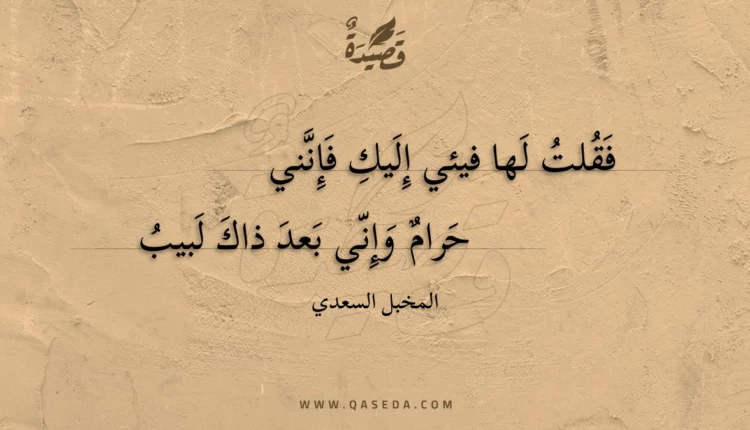 قَصِيدَةٌ
فَقُلتُ لَها فيئي إِلَيكِ فَإِنَّني
حَرامٌ وَإِنّي بَعدَ ذاكَ لَبيبُ
المخبل السعدي
WWW.QASEDA.COM